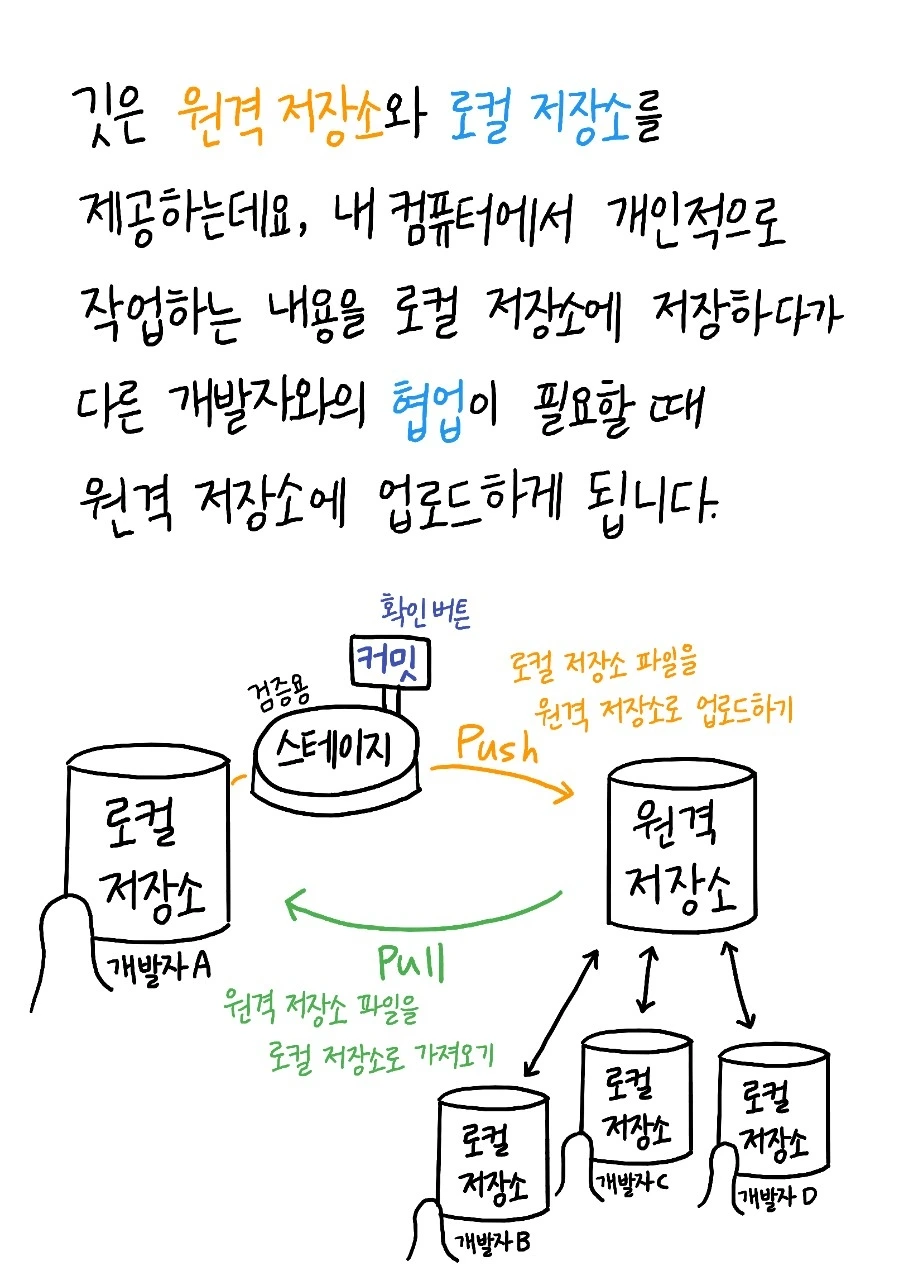 깃은 원격 저장소와 로컬 저장소를
제공하는데요, 내 컴퓨터에서 개인적으로
작업하는 내용을 로컬 저장소에 저장하다가
다른 개발자와의 협업이 필요할 때
원격 저장소에 업로드하게 됩니다.
확인버튼
커밋
검증용
스테이지
로컬 저장소 파일을
원격 저장소로 업로드하기
Push
로컬
저장소
개발자A
원격
저장소
Pull
원격 저장소 파일을
로컬 저장소로 가져오기
로컬
저장소
개발자B
로컬
저장소
개발자C
로컬
저장소
개발자D